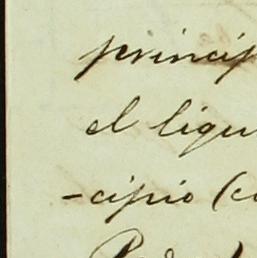 princip
el ligu
-cipio (co